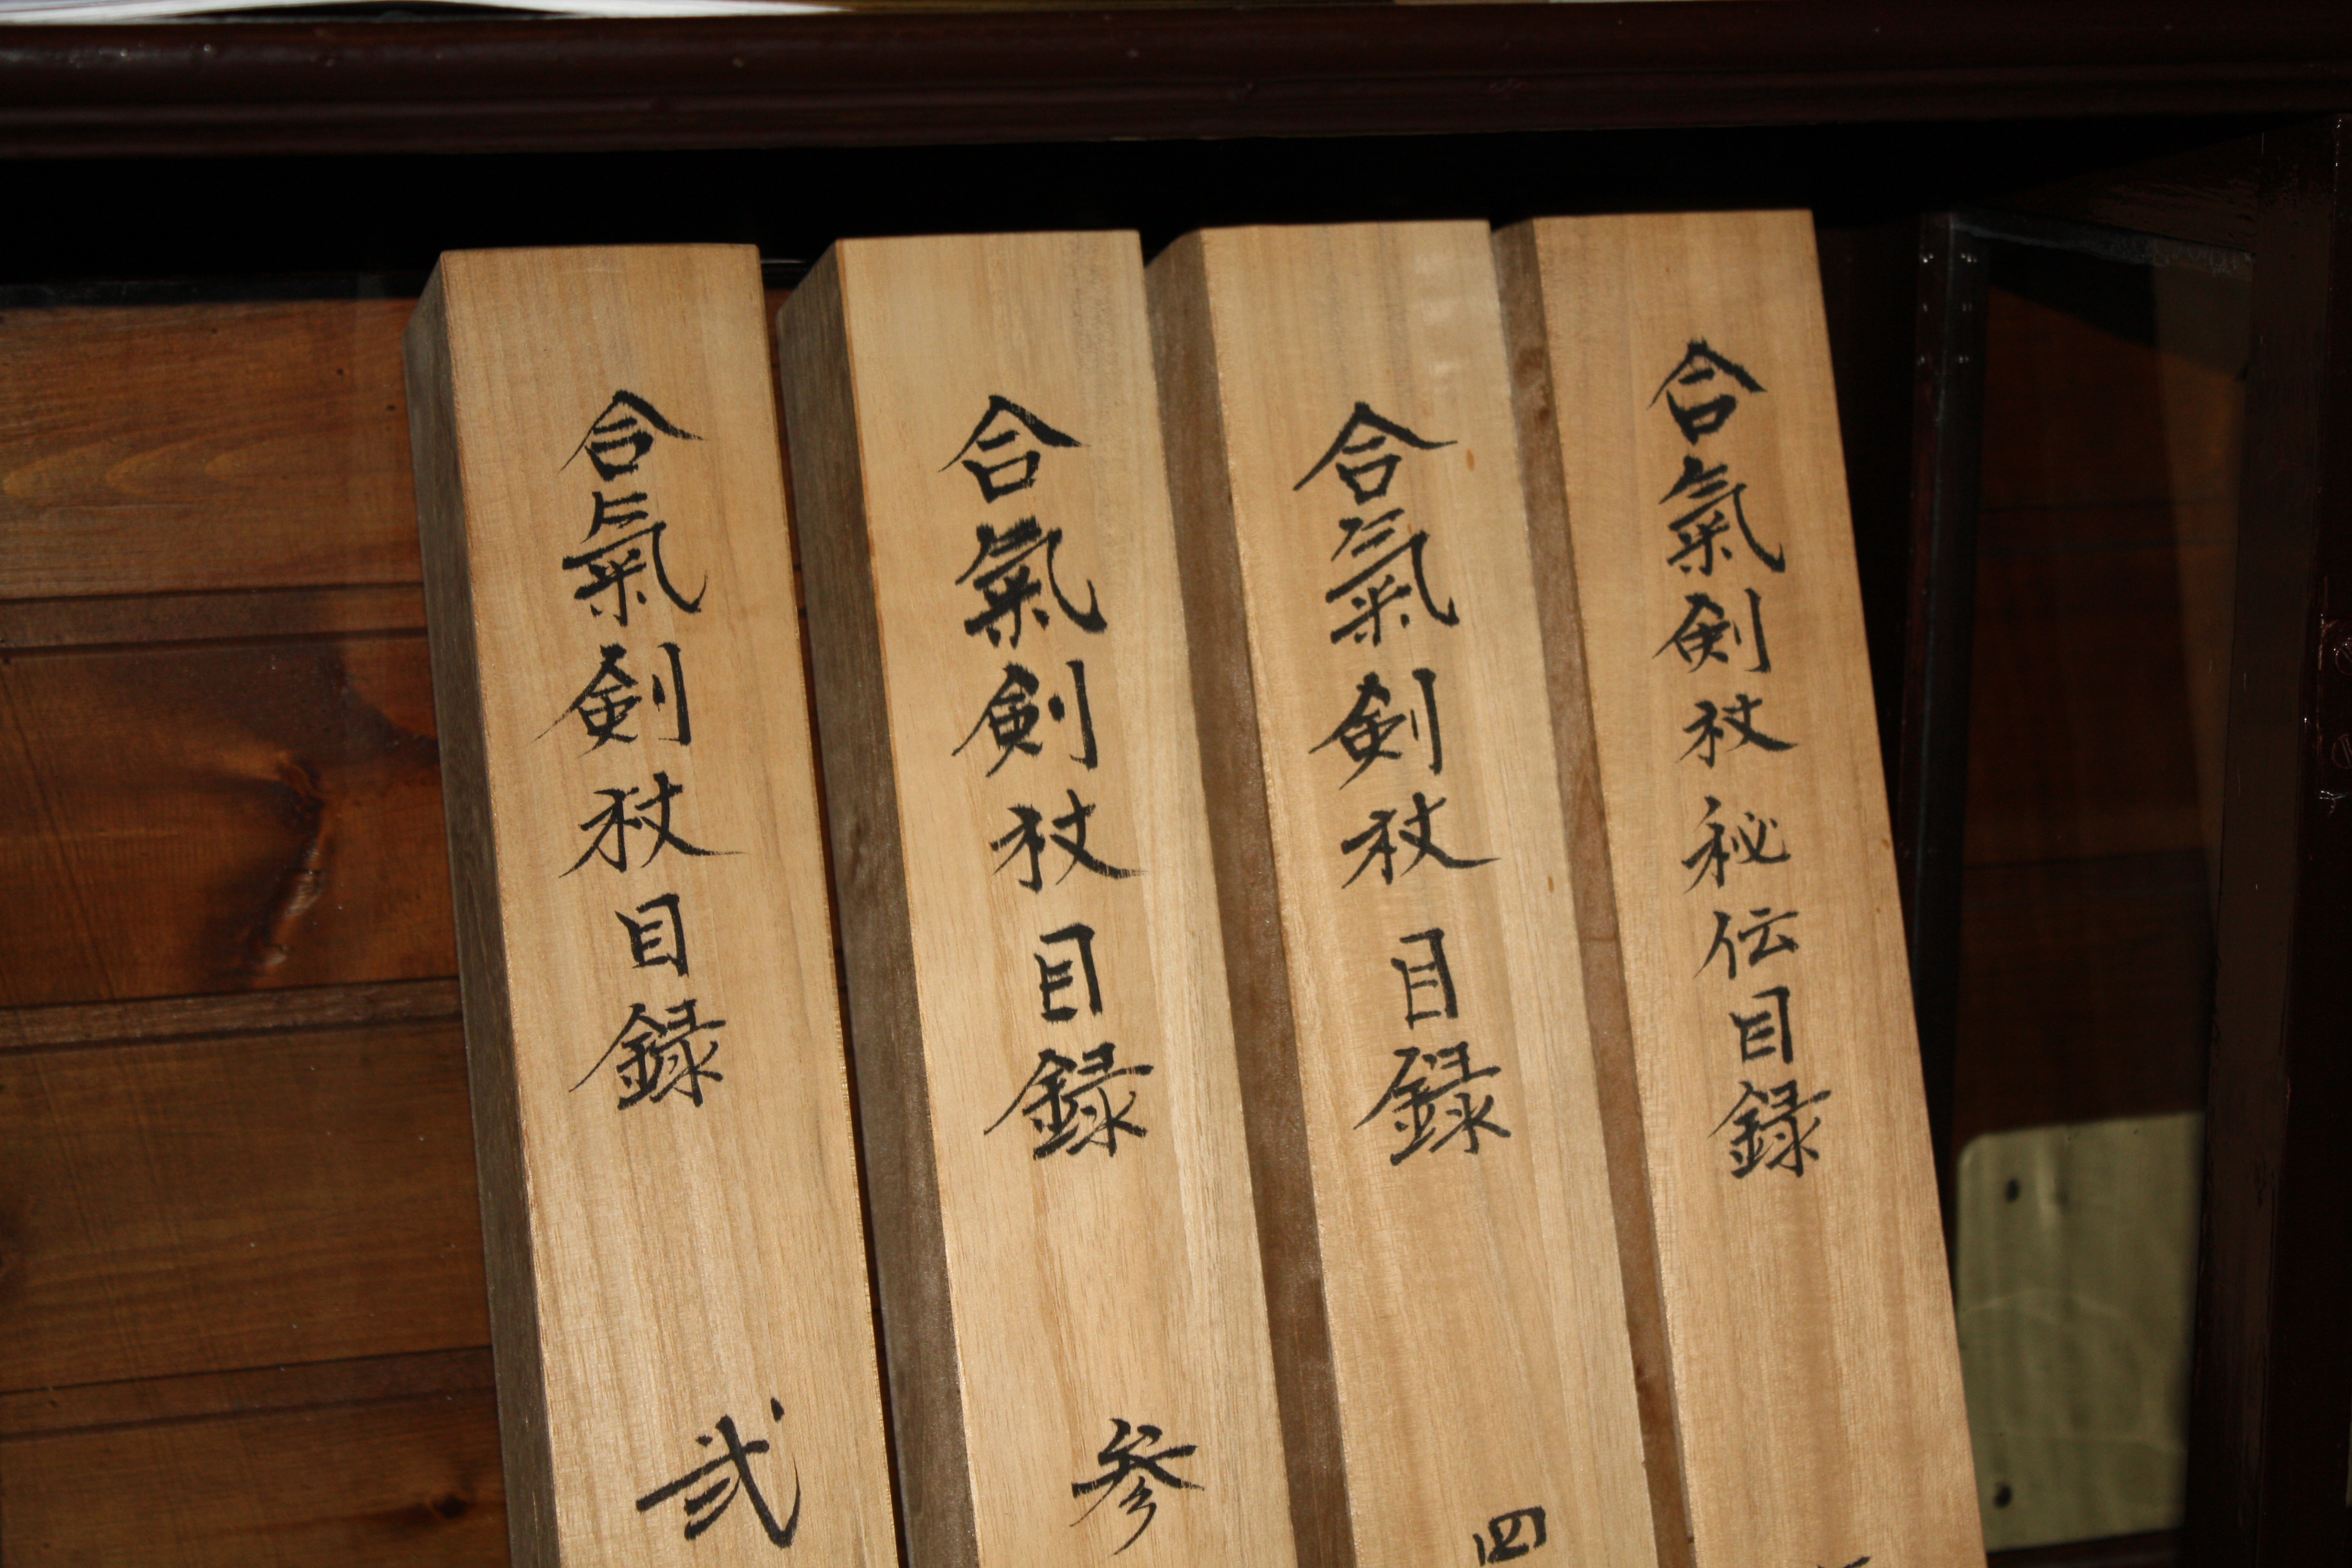 合氣剣杖目録 弐
合氣剣杖目録 参
合氣剣杖目録 四
合氣剣杖秘伝目録